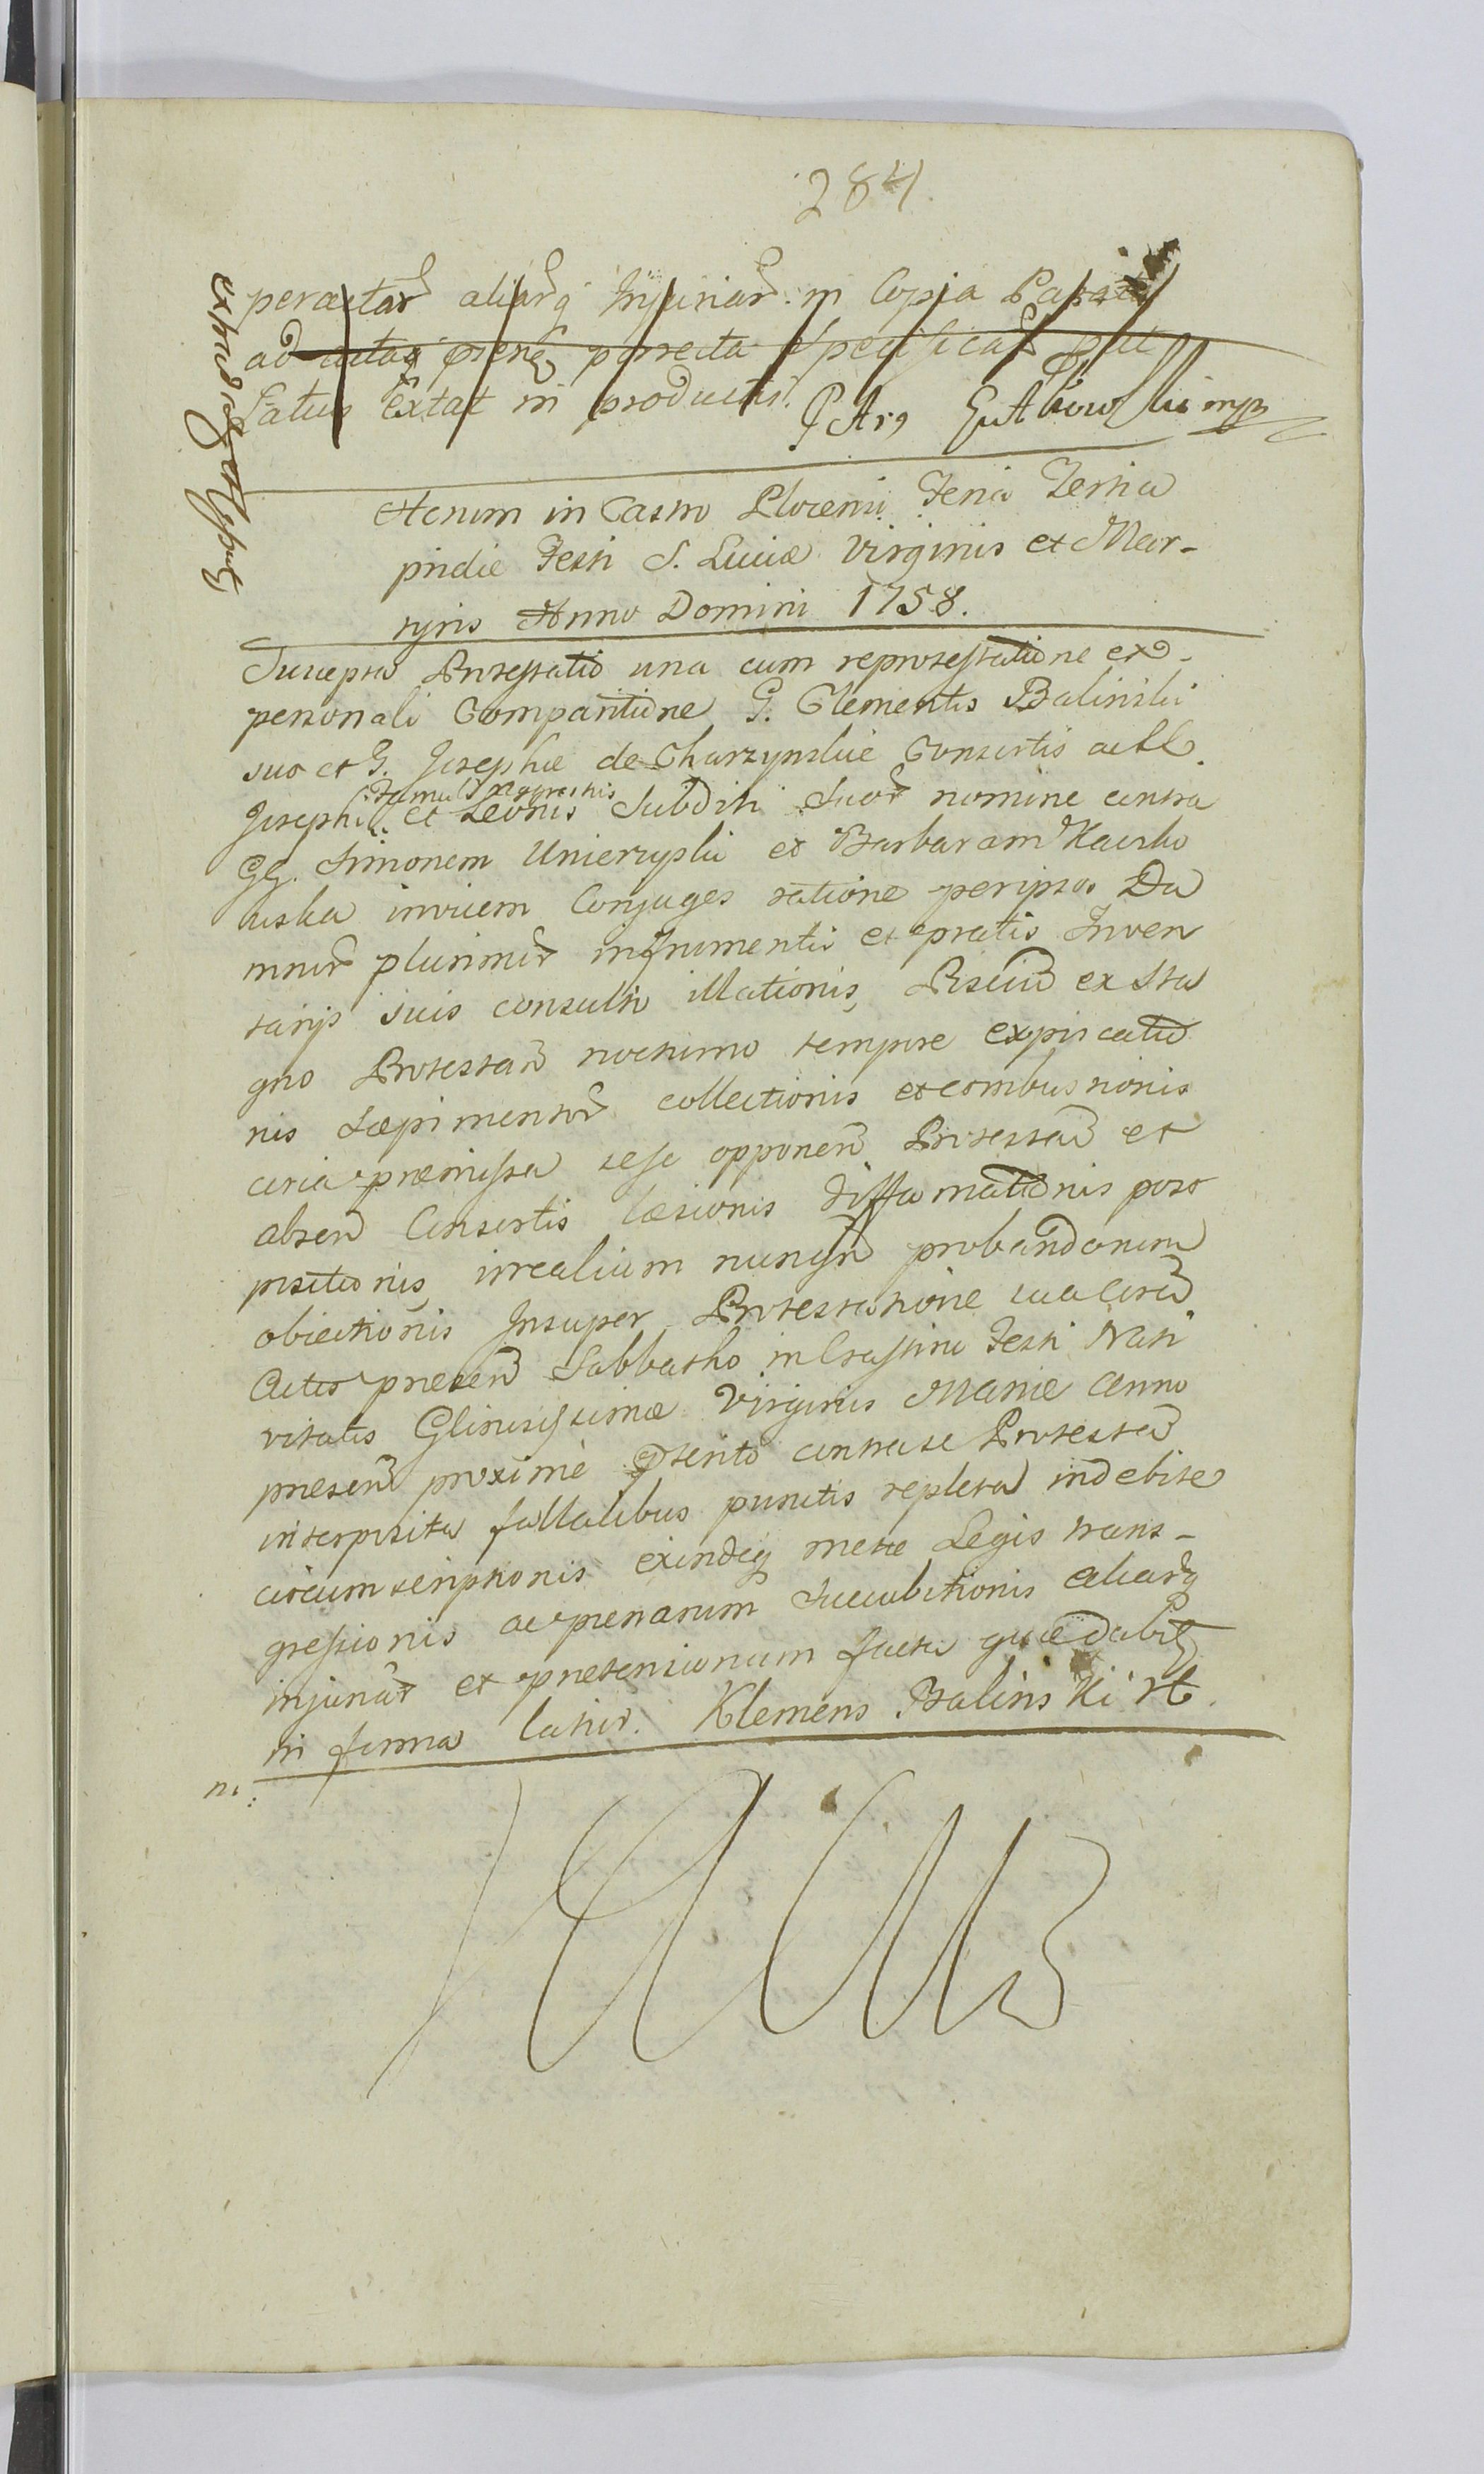 284.
peractar aliarq Injuriar in Copia Parata
ad actaq presen porrecta Specificat put
Latius Extat in productis.
Actum in Castro Plocensi Feria Tertia
pridie Festi S. Luciæ Virginis et Mar-
tyris Anno Domini 1758.
Suscepta Protestatio una cum reprotestatione ex
personali Comparitione G. Clementis Balinski
suo et G. Josephæ de Charzynskie Consortis ac ll.
Famuli Agrestis
Josephi et Leonis Subditi Suor nomine contra
GG. Simonem Unierzyski et Barbaram Kacsko
wska invicem Conjuges ratione per ipsos Da
mnor plurimor in frumentis et pratis Inven
tarijs suis consulto illationis, Pisciu ex Sta
gno Protestan nocturno tempore expiscatio
nis Sæpimentor collectionis et combustionis
circa præmissa sese opponen Protestan et
absen Consortis læsionis diffamationis poro
positionis, irrealium nunqu probandorum
obiectionis Insuper Protestatione sua coram
Actis presen Sabbatho in Crastino Festi Nati
vitatis Gloriosissimæ Virginis Mariæ Anno
presen proxime pterito contra se Protestan
interposita fallalibus punctis repleta indebite
circumscriptionis exindeq metæ Legis trans-
gressionis ac penarum Succubitionis aliarq
injuriar et pretensionum facta quæ dabit
in forma latior. Klemens Balinski